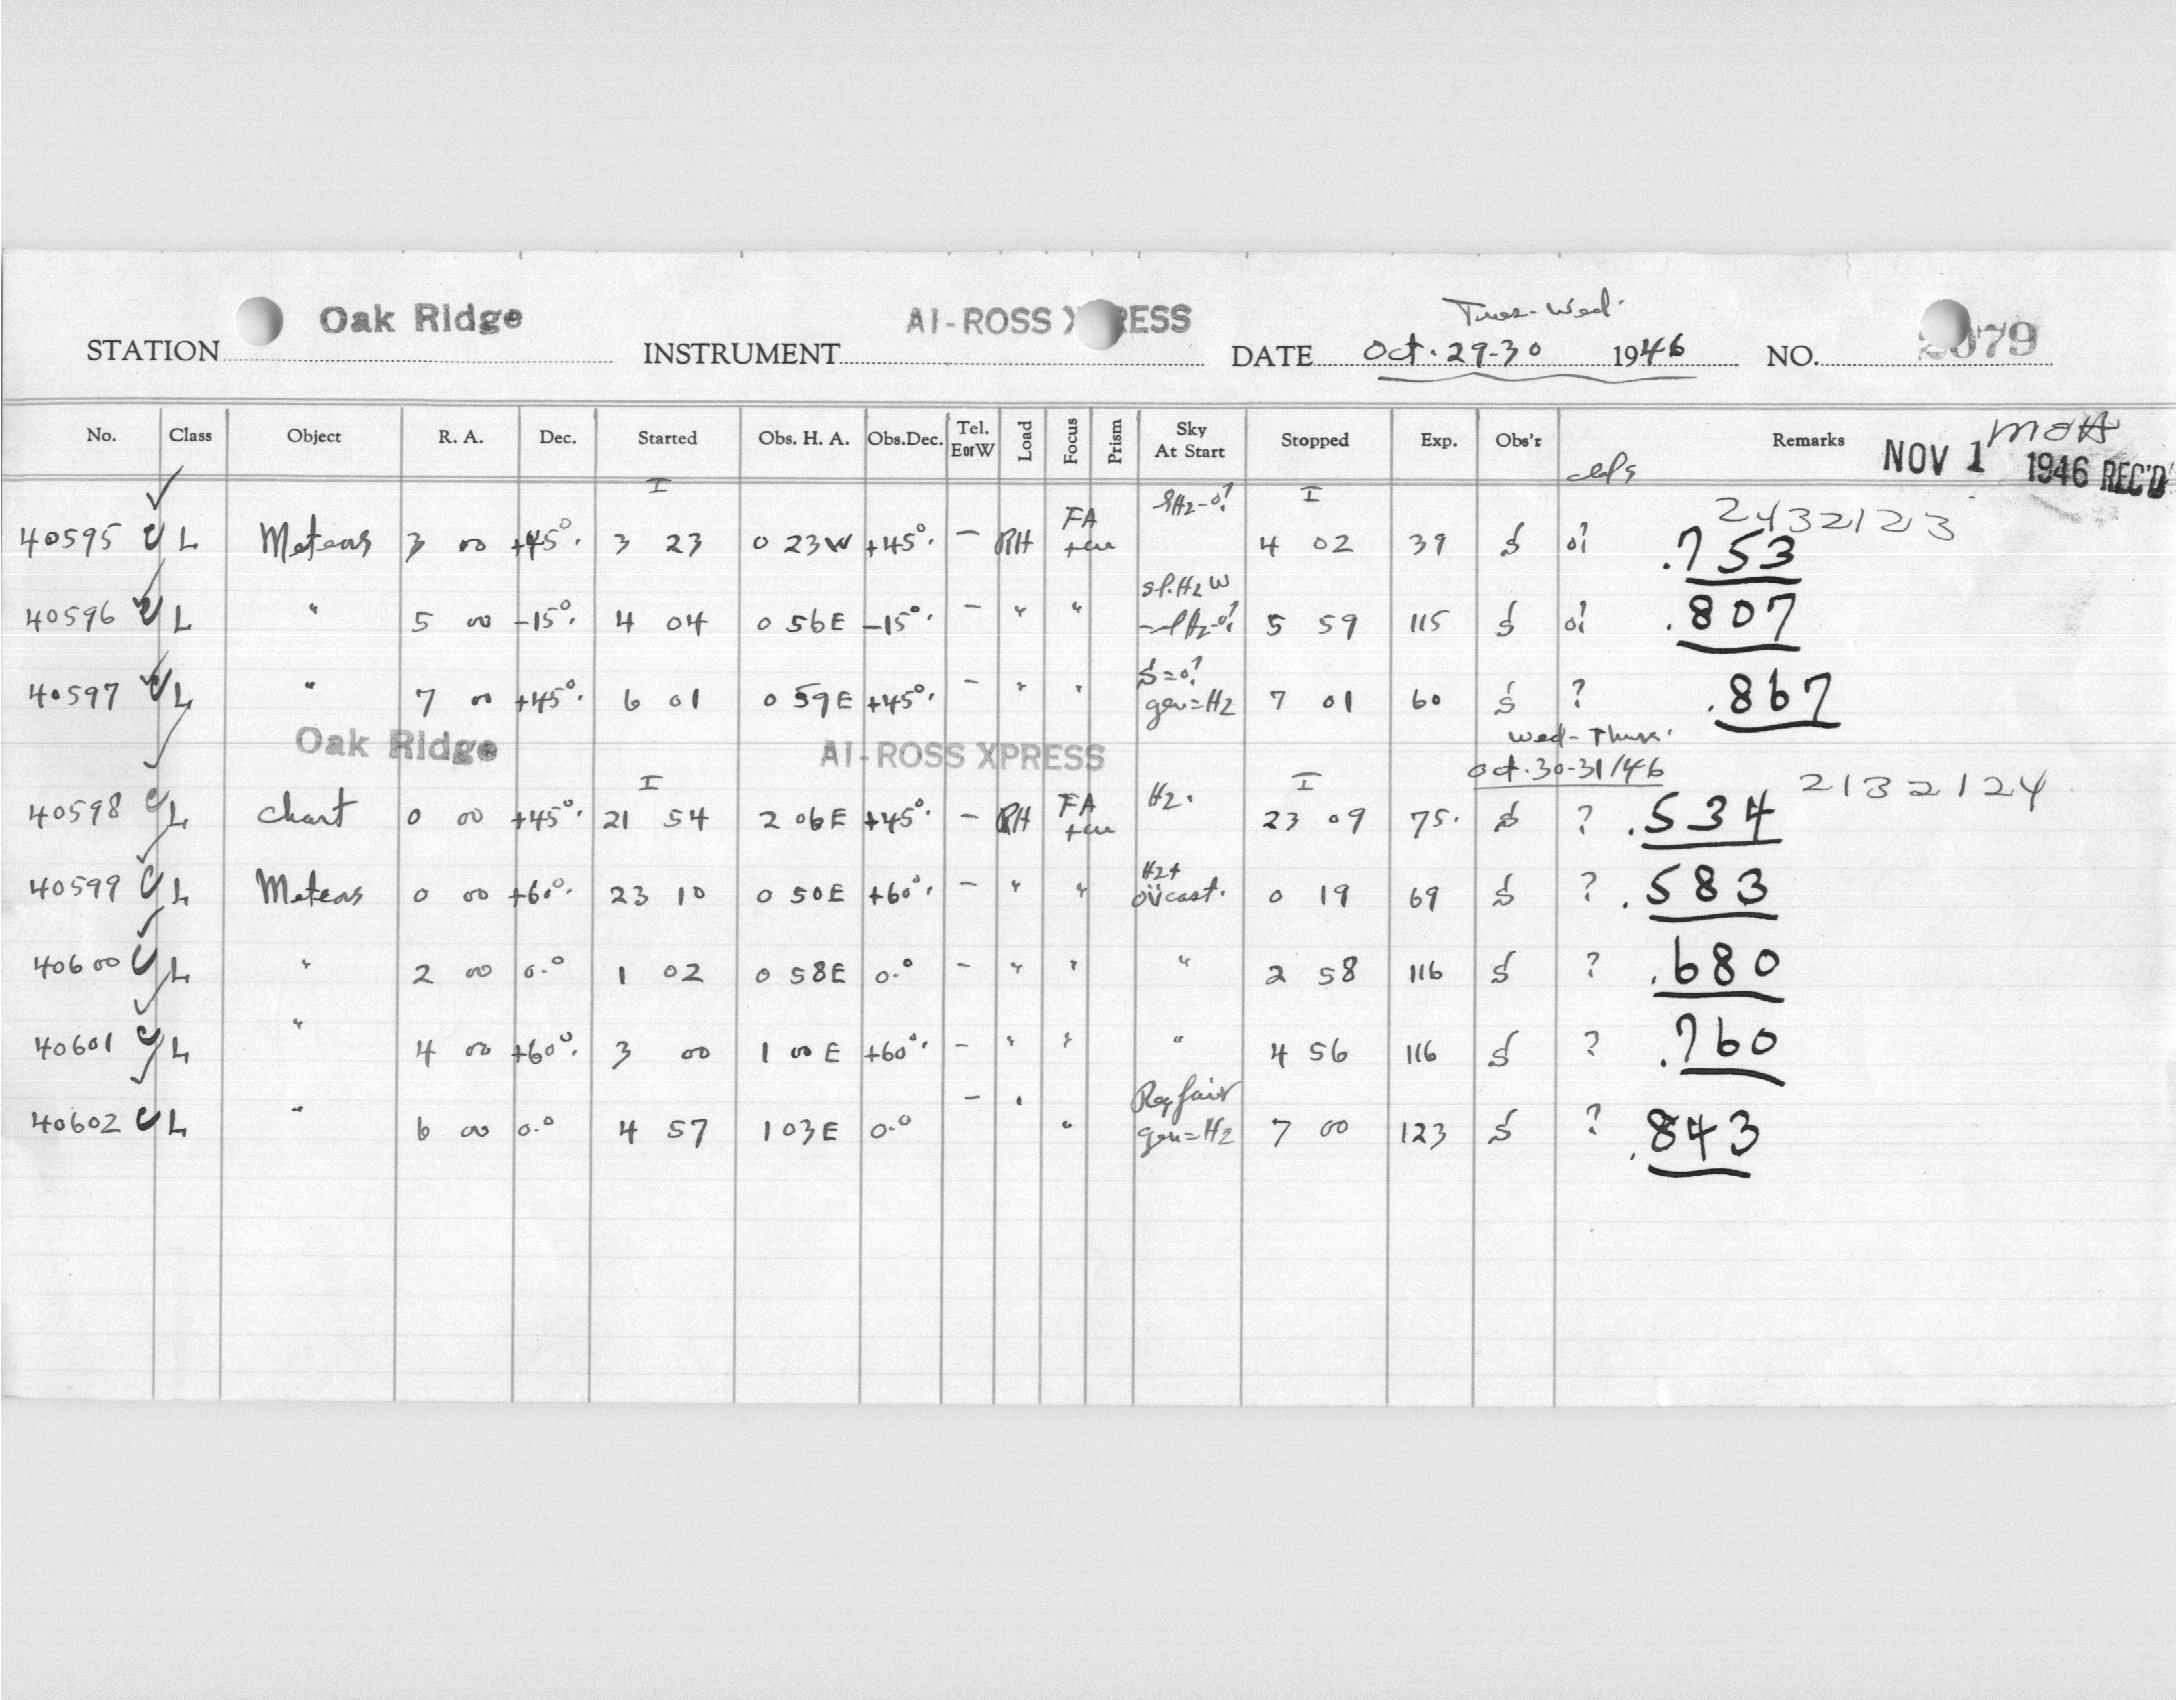 Oak Ridge AI-ROSS XPRESS Tues-Wed.
STATION INSTRUMENT DATE Oct. 29-30 1946 NO. 2079
No. Class Object R. A. Dec. Started Obs. H. A. Obs.Dec. Tel. EorW Load Focus Prism Sky At Start Stopped Exp. Obs'r Remarks
NOV 1 1946 REC'D
I I
2432123
40595 L Meteors 3 00 +45°. 3 23 0 23W +45°. - RH FA 4 02 39 S 0? .753
40596 L " 5 00 -15°. 4 04 0 56E -15°. - " " sl.H2 W 5 59 115 S 0? .807
40597 L " 7 00 +45°. 6 01 0 59E +45°. - " " S=0? gen=H2 7 01 60 S ? .867
Oak Ridge AI-ROSS XPRESS Wed-Thurs.
Oct. 30-31/46
I I
2132124
40598 L Chart 0 00 +45°. 21 54 2 06E +45°. - RH FA H2. 23 09 75. S ? .534
40599 L Meteors 0 00 +60°. 23 10 0 50E +60°. - " " H2+ 0 19 69 S ? .583
40600 L " 2 00 0.° 1 02 0 58E 0.° - " " " 2 58 116 S ? .680
40601 L " 4 00 +60°. 3 00 1 00 E +60°. - " " " 4 56 116 S ? .760
40602 L " 6 00 0.° 4 57 1 03E 0.° - " " gen=H2 7 00 123 S ? .843